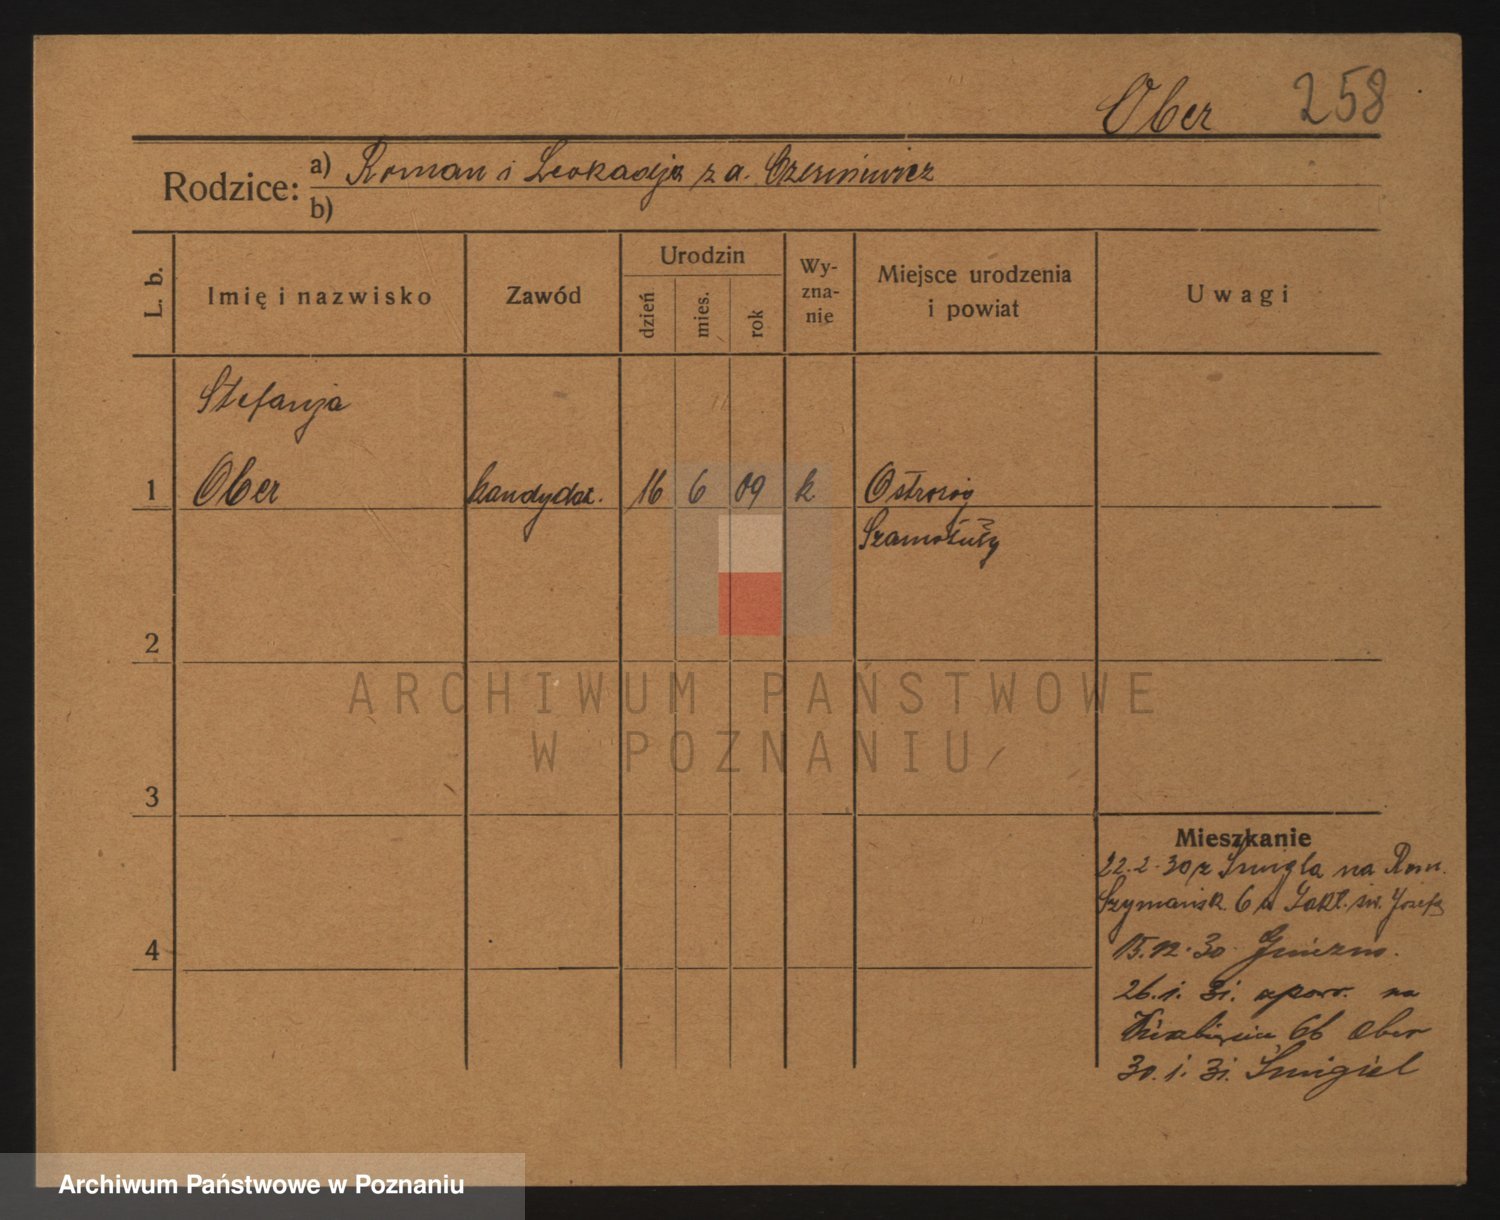 Ober 258
Rodzice: a) Roman i Leokadja z d.
b)
L. b.
Imię i nazwisko
Zawód
Urodzin
dzień
mies.
rok
Wy-
zna-
nie
Miejsce urodzenia
i powiat
Uwagi
Stefanja
1 Ober kandydat. 16 6 09 k Ostroróg
Szamotuły
2
3
4
Mieszkanie
22.2.30 z Śmigla na Rom.
Szymańsk. 6 Zakł. św. Józefa
15.12.30 Gniezno.
26.1.31. na
6b Ober
30.1.31. Śmigiel
ARCHIWUM PAŃSTWOWE
W POZNANIU
Archiwum Państwowe w Poznaniu